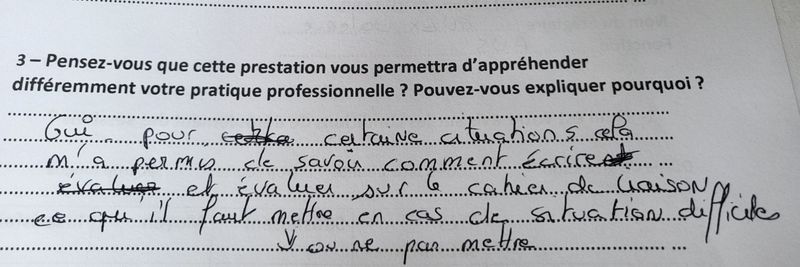 3 – Pensez-vous que cette prestation vous permettra d'appréhender
différemment votre pratique professionnelle ? Pouvez-vous expliquer pourquoi ?
Oui pour certaine situations cela
m'a permis de savoir comment écrire
et évaluer sur le cahier de liaison
ce qu'il faut mettre en cas de situation difficiles
ou ne pas mettre